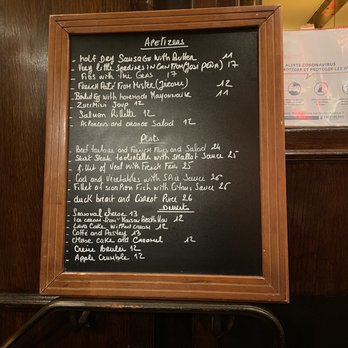 Apetizers
- half Dry Sausage with Butter 11
- Very little Sardines in Can From (José Peña) 17
- Figs with The Gras 17
- French Paté From Mister (Jacques) 12
- Boiled Egg with homemade Mayonnaise 11
- Zucchini Soup 12
- Salmon Rillette 12
- Asparagus and orange Salad 12
Plats
- Beef tartare and French Fries and Salad 24
- Steak with Shallot Sauce 25
- fillet of Veal with French Fries 25
- Cod and Vegetables with Spice Sauce 26
- Fillet of scorpion Fish with Citrus Sauce 26
- duck breast and Carrot Puree 26
Desserts
- Seasonal cheese 13
- Ice cream From "Maison Berthillon" 12
- Lava Cake with cream 12
- Coffe and Pastry 13
- Caramel 12
- Creme Brulée 12
- Apple Crumble 12
ALERTE CORONAVIRUS
PROTÉGER ET PROTÉGER LES